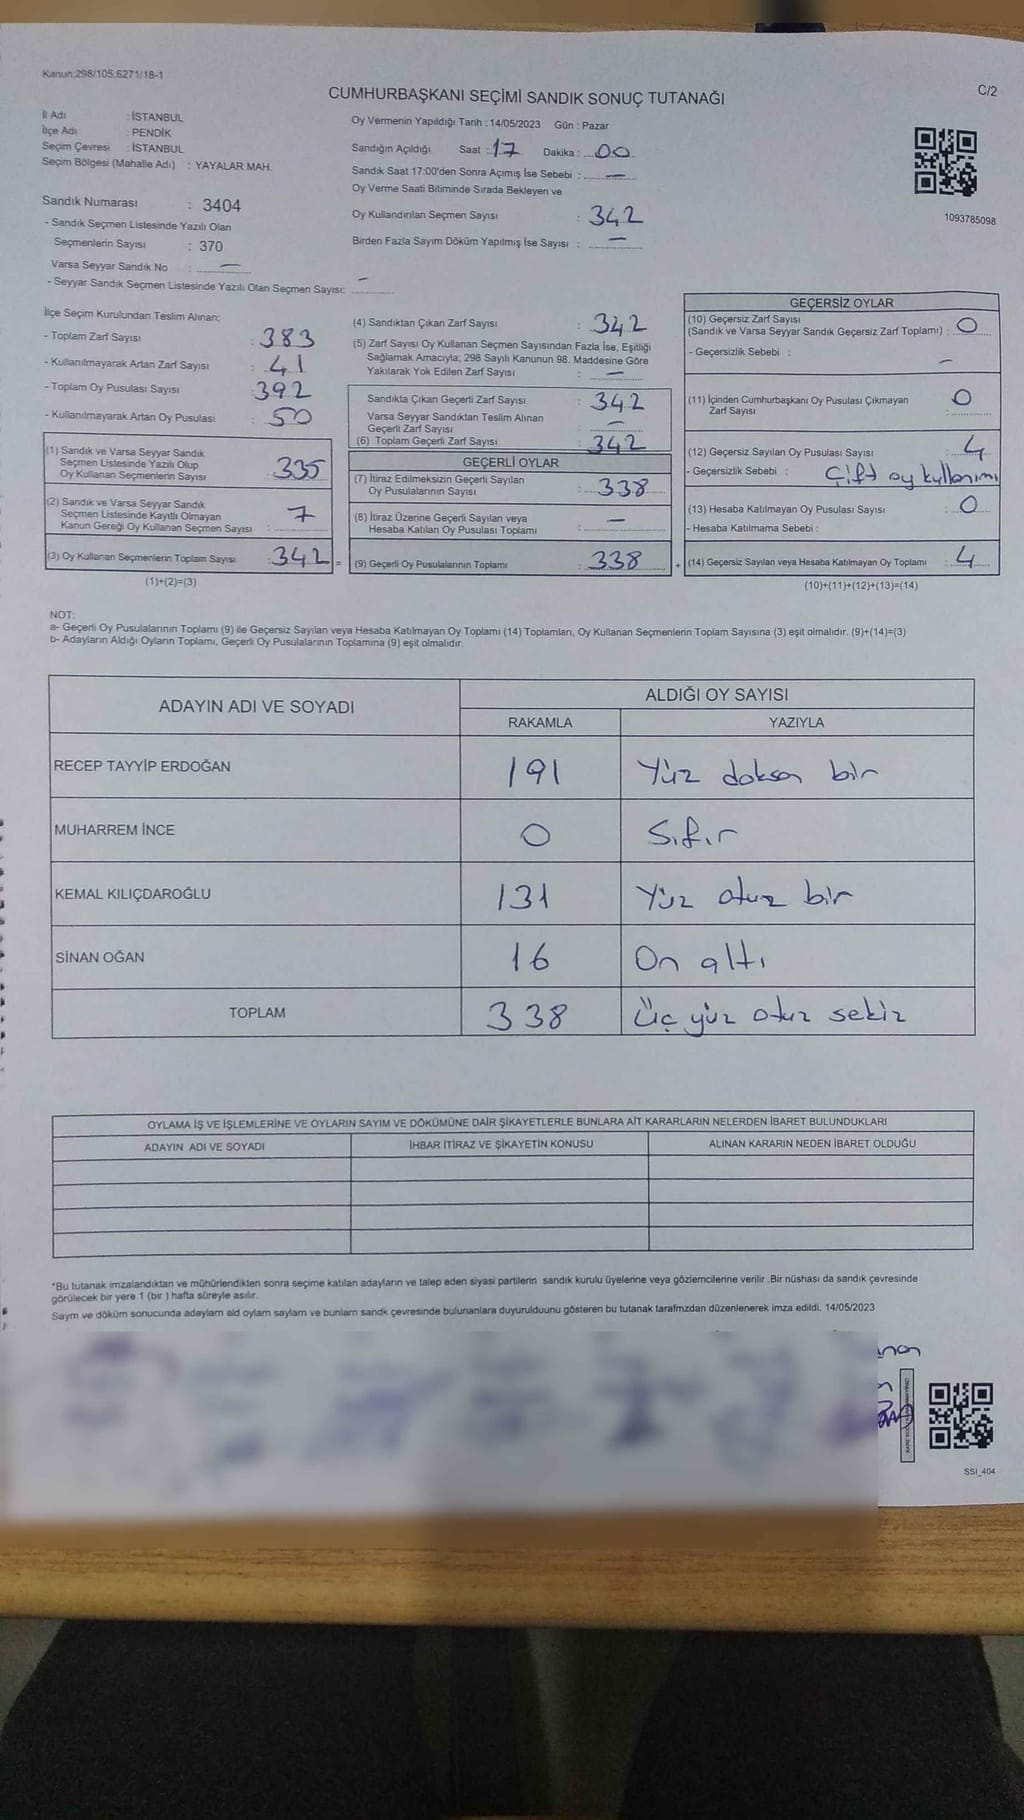 Kanun;298/105;6271/18-1
CUMHURBAŞKANI SEÇİMİ SANDIK SONUÇ TUTANAĞI
C/2
İl Adı : İSTANBUL
İlçe Adı : PENDİK
Seçim Çevresi : İSTANBUL
Seçim Bölgesi (Mahalle Adı) : YAYALAR MAH.
Sandık Numarası : 3404
- Sandık Seçmen Listesinde Yazılı Olan
Seçmenlerin Sayısı : 370
Varsa Seyyar Sandık No : —
- Seyyar Sandık Seçmen Listesinde Yazılı Olan Seçmen Sayısı: —
Oy Vermenin Yapıldığı Tarih : 14/05/2023 Gün : Pazar
Sandığın Açıldığı Saat : 17 Dakika : 00
Sandık Saat 17:00'den Sonra Açımış İse Sebebi : —
Oy Verme Saati Bitiminde Sırada Bekleyen ve
Oy Kullandırılan Seçmen Sayısı : 342
Birden Fazla Sayım Döküm Yapılmış İse Sayısı : —
1093785098
İlçe Seçim Kurulundan Teslim Alınan;
- Toplam Zarf Sayısı : 383
- Kullanılmayarak Artan Zarf Sayısı : 41
- Toplam Oy Pusulası Sayısı : 392
- Kullanılmayarak Artan Oy Pusulası : 50
(1) Sandık ve Varsa Seyyar Sandık
Seçmen Listesinde Yazılı Olup
Oy Kullanan Seçmenlerin Sayısı : 335
(2) Sandık ve Varsa Seyyar Sandık
Seçmen Listesinde Kayıtlı Olmayan
Kanun Gereği Oy Kullanan Seçmen Sayısı : 7
(3) Oy Kullanan Seçmenlerin Toplam Sayısı : 342 =
(1)+(2)=(3)
(4) Sandıktan Çıkan Zarf Sayısı : 342
(5) Zarf Sayısı Oy Kullanan Seçmen Sayısından Fazla İse, Eşitliği
Sağlamak Amacıyla; 298 Sayılı Kanunun 98. Maddesine Göre
Yakılarak Yok Edilen Zarf Sayısı : —
Sandıkta Çıkan Geçerli Zarf Sayısı : 342
Varsa Seyyar Sandıktan Teslim Alınan
Geçerli Zarf Sayısı : —
(6) Toplam Geçerli Zarf Sayısı : 342
GEÇERLİ OYLAR
(7) İtiraz Edilmeksizin Geçerli Sayılan
Oy Pusulalarının Sayısı : 338
(8) İtiraz Üzerine Geçerli Sayılan veya
Hesaba Katılan Oy Pusulası Toplamı : —
(9) Geçerli Oy Pusulalarının Toplamı : 338 +
GEÇERSİZ OYLAR
(10) Geçersiz Zarf Sayısı
(Sandık ve Varsa Seyyar Sandık Geçersiz Zarf Toplamı) : 0
- Geçersizlik Sebebi : —
(11) İçinden Cumhurbaşkanı Oy Pusulası Çıkmayan
Zarf Sayısı : 0
(12) Geçersiz Sayılan Oy Pusulası Sayısı : 4
- Geçersizlik Sebebi : Çift oy kullanımı
(13) Hesaba Katılmayan Oy Pusulası Sayısı : 0
- Hesaba Katılmama Sebebi :
(14) Geçersiz Sayılan veya Hesaba Katılmayan Oy Toplamı : 4
(10)+(11)+(12)+(13)=(14)
NOT:
a- Geçerli Oy Pusulalarının Toplamı (9) ile Geçersiz Sayılan veya Hesaba Katılmayan Oy Toplamı (14) Toplamları, Oy Kullanan Seçmenlerin Toplam Sayısına (3) eşit olmalıdır. (9)+(14)=(3)
b- Adayların Aldığı Oyların Toplamı, Geçerli Oy Pusulalarının Toplamına (9) eşit olmalıdır.
ADAYIN ADI VE SOYADI ALDIĞI OY SAYISI
RAKAMLA YAZIYLA
RECEP TAYYİP ERDOĞAN 191 Yüz doksan bir
MUHARREM İNCE 0 Sıfır
KEMAL KILIÇDAROĞLU 131 Yüz otuz bir
SİNAN OĞAN 16 On altı
TOPLAM 338 Üç yüz otuz sekiz
OYLAMA İŞ VE İŞLEMLERİNE VE OYLARIN SAYIM VE DÖKÜMÜNE DAİR ŞİKAYETLERLE BUNLARA AİT KARARLARIN NELERDEN İBARET BULUNDUKLARI
ADAYIN ADI VE SOYADI İHBAR İTİRAZ VE ŞİKAYETİN KONUSU ALINAN KARARIN NEDEN İBARET OLDUĞU
*Bu tutanak imzalandıktan ve mühürlendikten sonra seçime katılan adayların ve talep eden siyasi partilerin sandık kurulu üyelerine veya gözlemcilerine verilir .Bir nüshası da sandık çevresinde
görülecek bir yere 1 (bir ) hafta süreyle asılır.
Saym ve döküm sonucunda adaylarn ald oylarn saylarn ve bunlarn sandk çevresinde bulunanlara duyurulduunu gösteren bu tutanak tarafmzdan düzenlenerek imza edildi. 14/05/2023
SSI_404